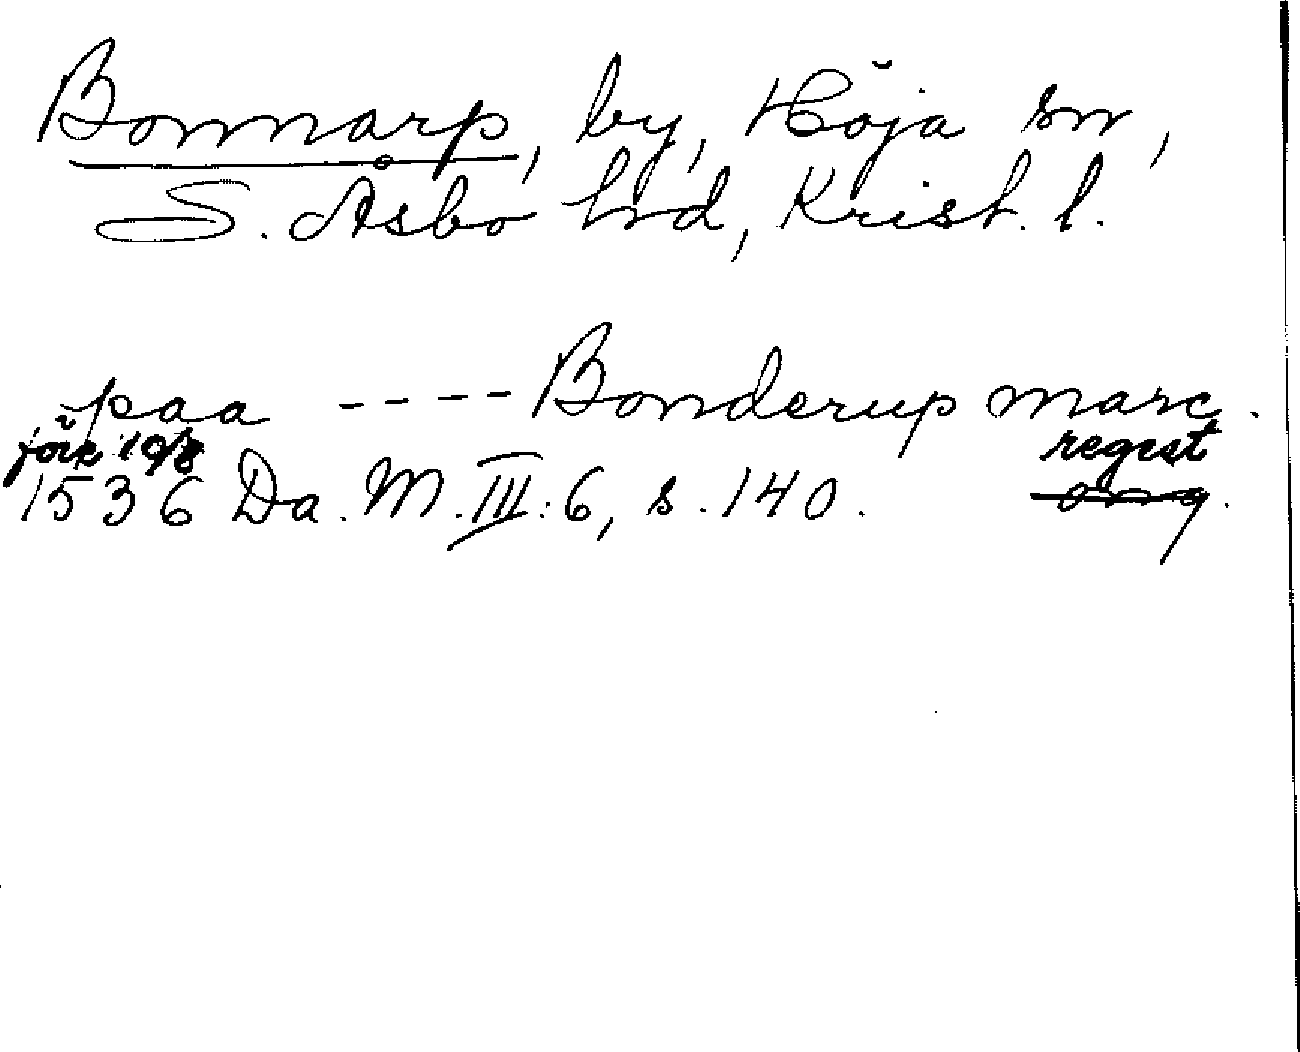 Bonnarp, by, Höja sn,
S. Åsbo hrd, Krist. l.
paa ---- Bonderup marc.
före 10/8 regest
1536 Da. M. III:6, s. 140. org.